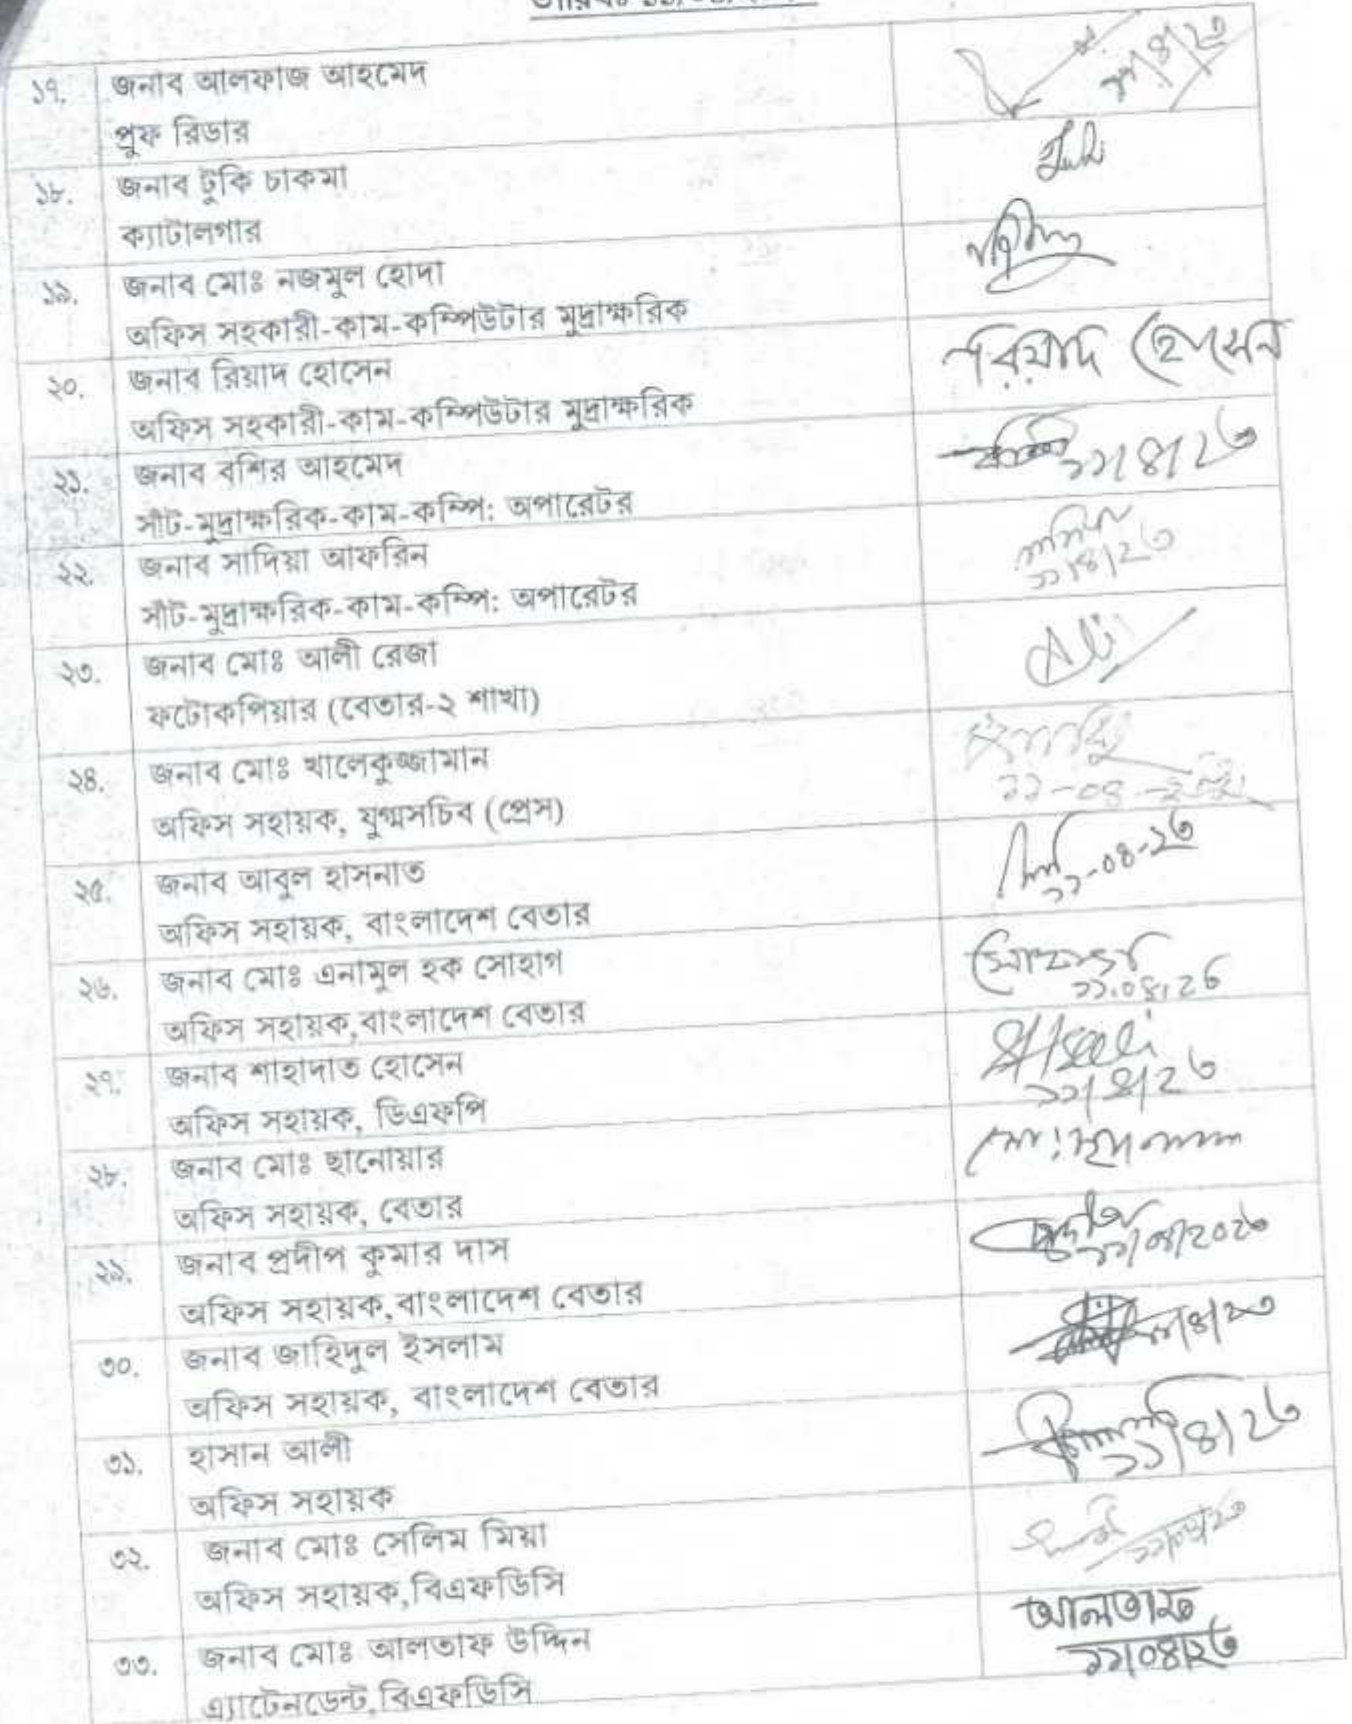 ১৭. জনাব আলফাজ আহমেদ
প্রুফ রিডার
১১/৪/২৩
১৮. জনাব টুকি চাকমা
ক্যাটালগার
১৯. জনাব মোঃ নজমুল হোদা
অফিস সহকারী-কাম-কম্পিউটার মুদ্রাক্ষরিক
২০. জনাব রিয়াদ হোসেন
অফিস সহকারী-কাম-কম্পিউটার মুদ্রাক্ষরিক
রিয়াদ হোসেন
২১. জনাব বশির আহমেদ
সাঁট-মুদ্রাক্ষরিক-কাম-কম্পি: অপারেটর
১১/৪/২৩
২২. জনাব সাদিয়া আফরিন
সাঁট-মুদ্রাক্ষরিক-কাম-কম্পি: অপারেটর
১১/৪/২৩
২৩. জনাব মোঃ আলী রেজা
ফটোকপিয়ার (বেতার-২ শাখা)
Ali
২৪. জনাব মোঃ খালেকুজ্জামান
অফিস সহায়ক, যুগ্মসচিব (প্রেস)
২৫. জনাব আবুল হাসনাত
অফিস সহায়ক, বাংলাদেশ বেতার
১১-০৪-২৩
২৬. জনাব মোঃ এনামুল হক সোহাগ
অফিস সহায়ক,বাংলাদেশ বেতার
সোহাগ
১১.০৪.২৩
২৭. জনাব শাহাদাত হোসেন
অফিস সহায়ক, ডিএফপি
১১/৪/২৩
২৮. জনাব মোঃ ছানোয়ার
অফিস সহায়ক, বেতার
২৯. জনাব প্রদীপ কুমার দাস
অফিস সহায়ক,বাংলাদেশ বেতার
১১/০৪/২০২৩
৩০. জনাব জাহিদুল ইসলাম
অফিস সহায়ক, বাংলাদেশ বেতার
১১/৪/২৩
৩১. হাসান আলী
অফিস সহায়ক
১১/৪/২৩
৩২. জনাব মোঃ সেলিম মিয়া
অফিস সহায়ক,বিএফডিসি
১১/০৪/২৩
৩৩. জনাব মোঃ আলতাফ উদ্দিন
এ্যাটেনডেন্ট,বিএফডিসি
আলতাফ
১১/০৪/২৩